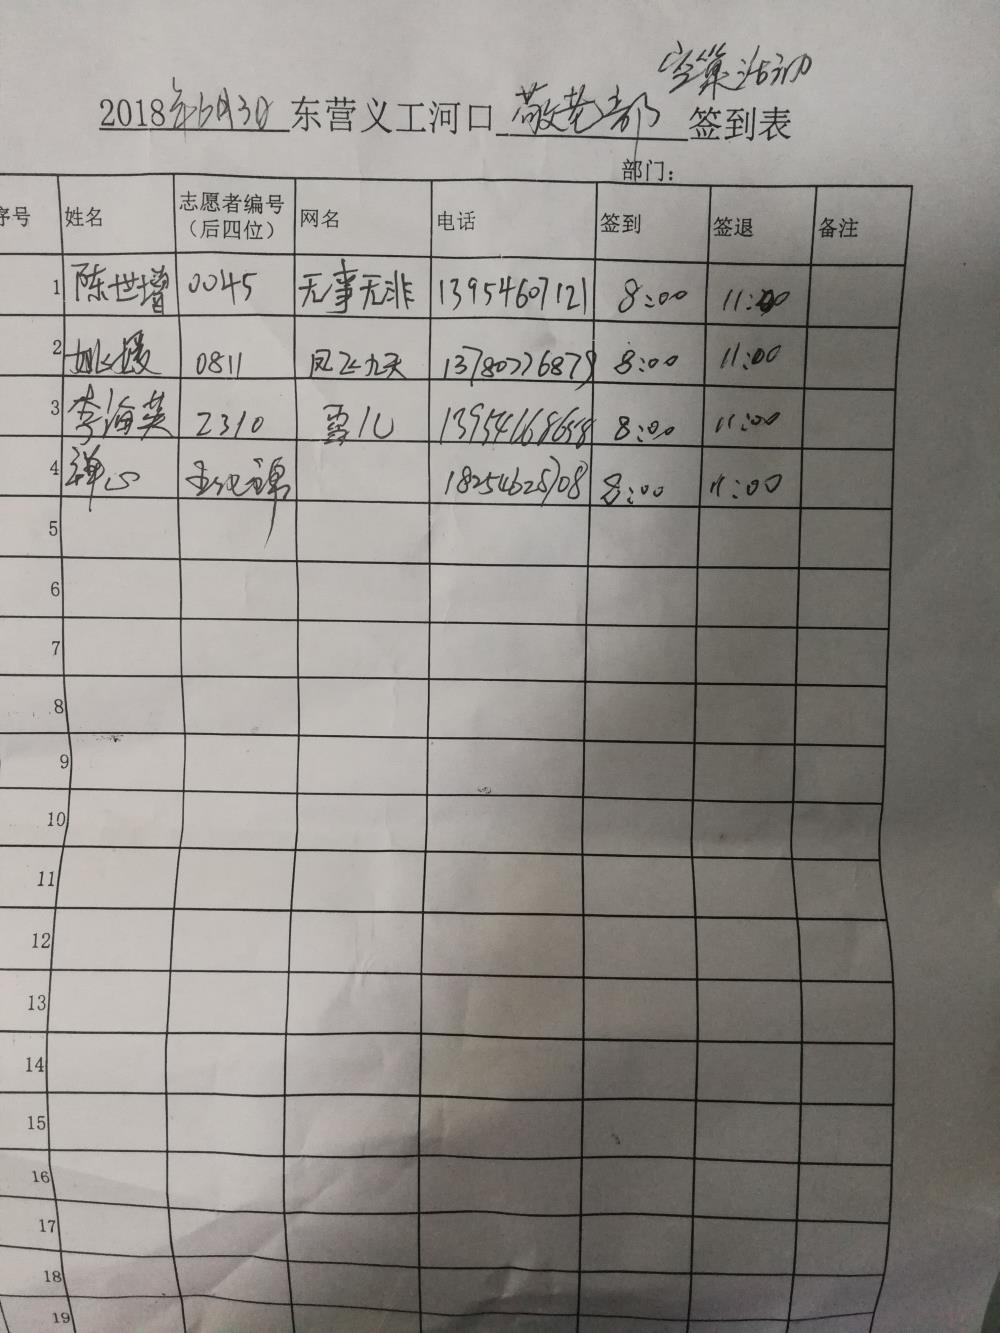 空巢活动
2018年6月30 东营义工河口 敬老部 签到表
部门：
序号 姓名 志愿者编号（后四位） 网名 电话 签到 签退 备注
1 陈世增 0045 无事无非 13954607121 8:00 11:00
2 0811 凤飞九天 13780776879 8:00 11:00
3 李海英 2310 雪儿 13954168658 8:00 11:00
4 禅心 18254628708 8:00 11:00
5
6
7
8
9
10
11
12
13
14
15
16
17
18
19